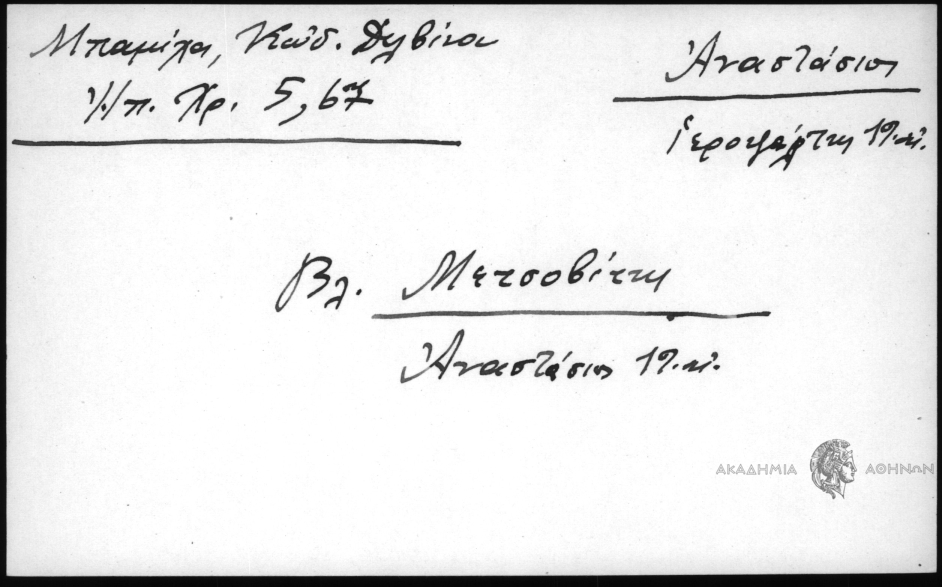 Μπαμίχα, Κώδ. Δελβίνου
Ἠπ. Χρ. 5, 67
Ἀναστάσιος
Ἱεροψάλτης 19.αἰ.
Βλ. Μετσοβίτης
Ἀναστάσιος 19.αἰ.
ΑΚΑΔΗΜΙΑ ΑΘΗΝΩΝ